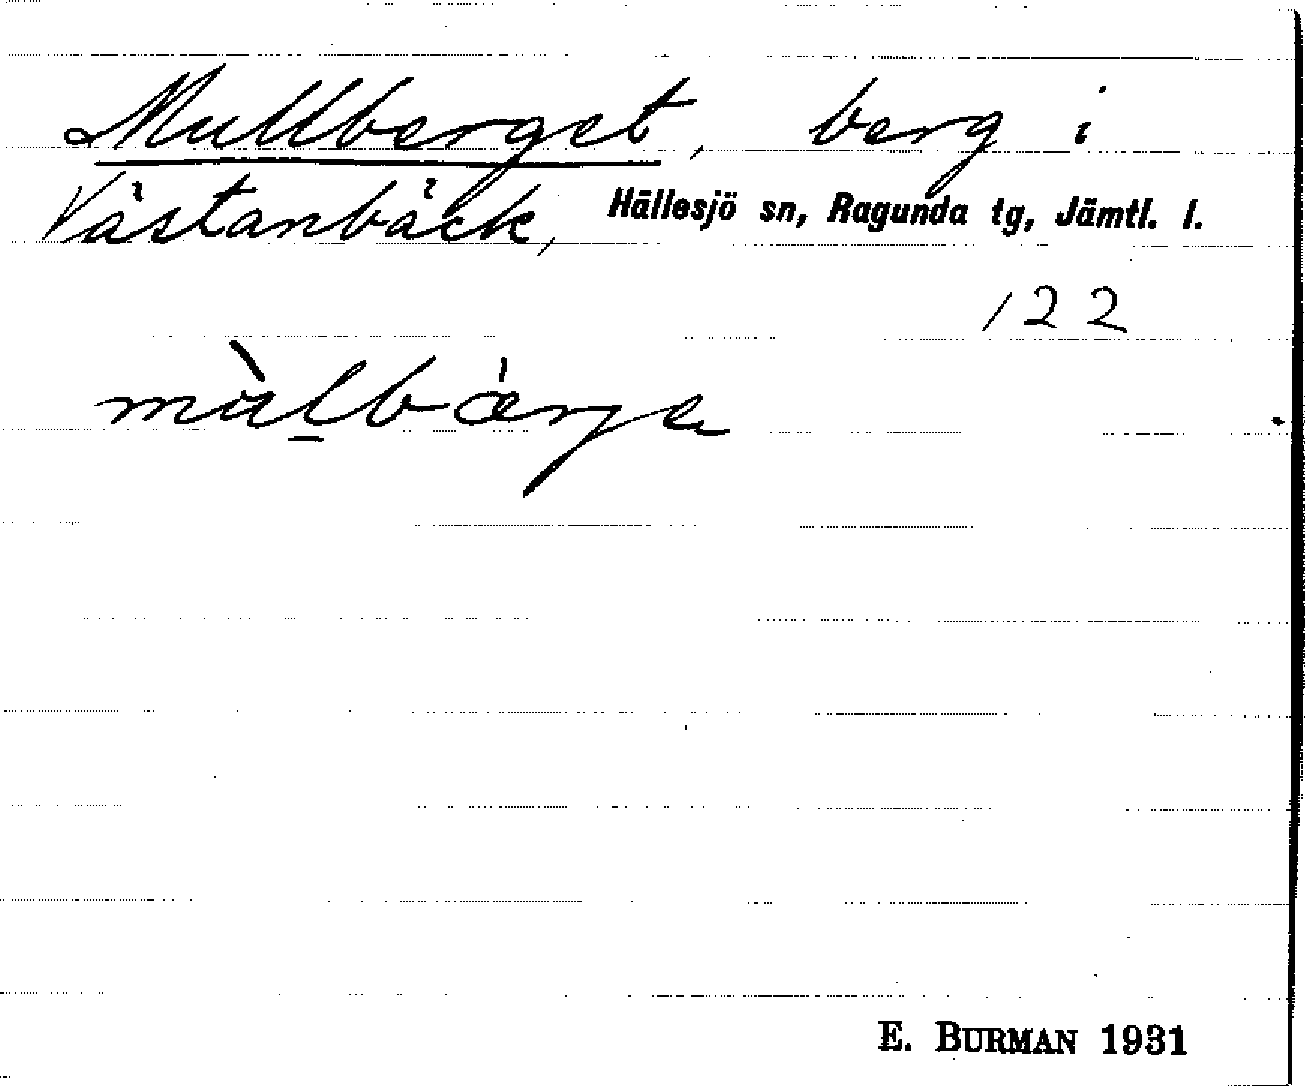 Mullberget, berg i
Västanbäck, Hällesjö sn, Ragunda tg, Jämtl. l.
122
mùl̠bǽrjɐ
E. BURMAN 1931